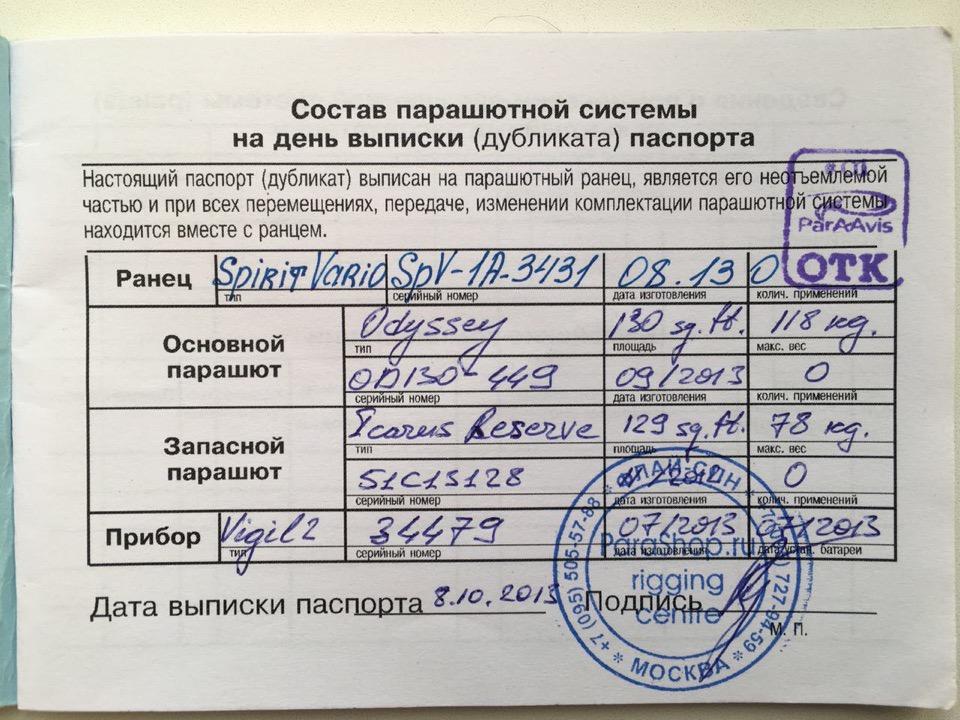 Состав парашютной системы
на день выписки (дубликата) паспорта
Настоящий паспорт (дубликат) выписан на парашютный ранец, является его неотъемлемой
частью и при всех перемещениях, передаче, изменении комплектации парашютной системы
находится вместе с ранцем.
ParAAvis
ОТК
Ранец Spirit Vario SpV-1A-3431 08.13 0
тип серийный номер дата изготовления колич. применений
Основной парашют Odyssey 130 sq.ft. 118 кg.
тип площадь макс. вес
OD130-449 09/2013 0
серийный номер дата изготовления колич. применений
Запасной парашют Icarus Reserve 129 sq.ft. 78 кg.
тип площадь макс. вес
S1C13128 0
серийный номер дата изготовления колич. применений
Прибор Vigil 2 34479 07/2013 07/2013
тип серийный номер дата изготовления дата устан. батареи
Дата выписки паспорта 8.10.2013 Подпись
М. П.
Parashop.ru
rigging
centre
+7 (095) 505-57-88 * ФЛАЙ СПН *
727-94-59 * МОСКВА *